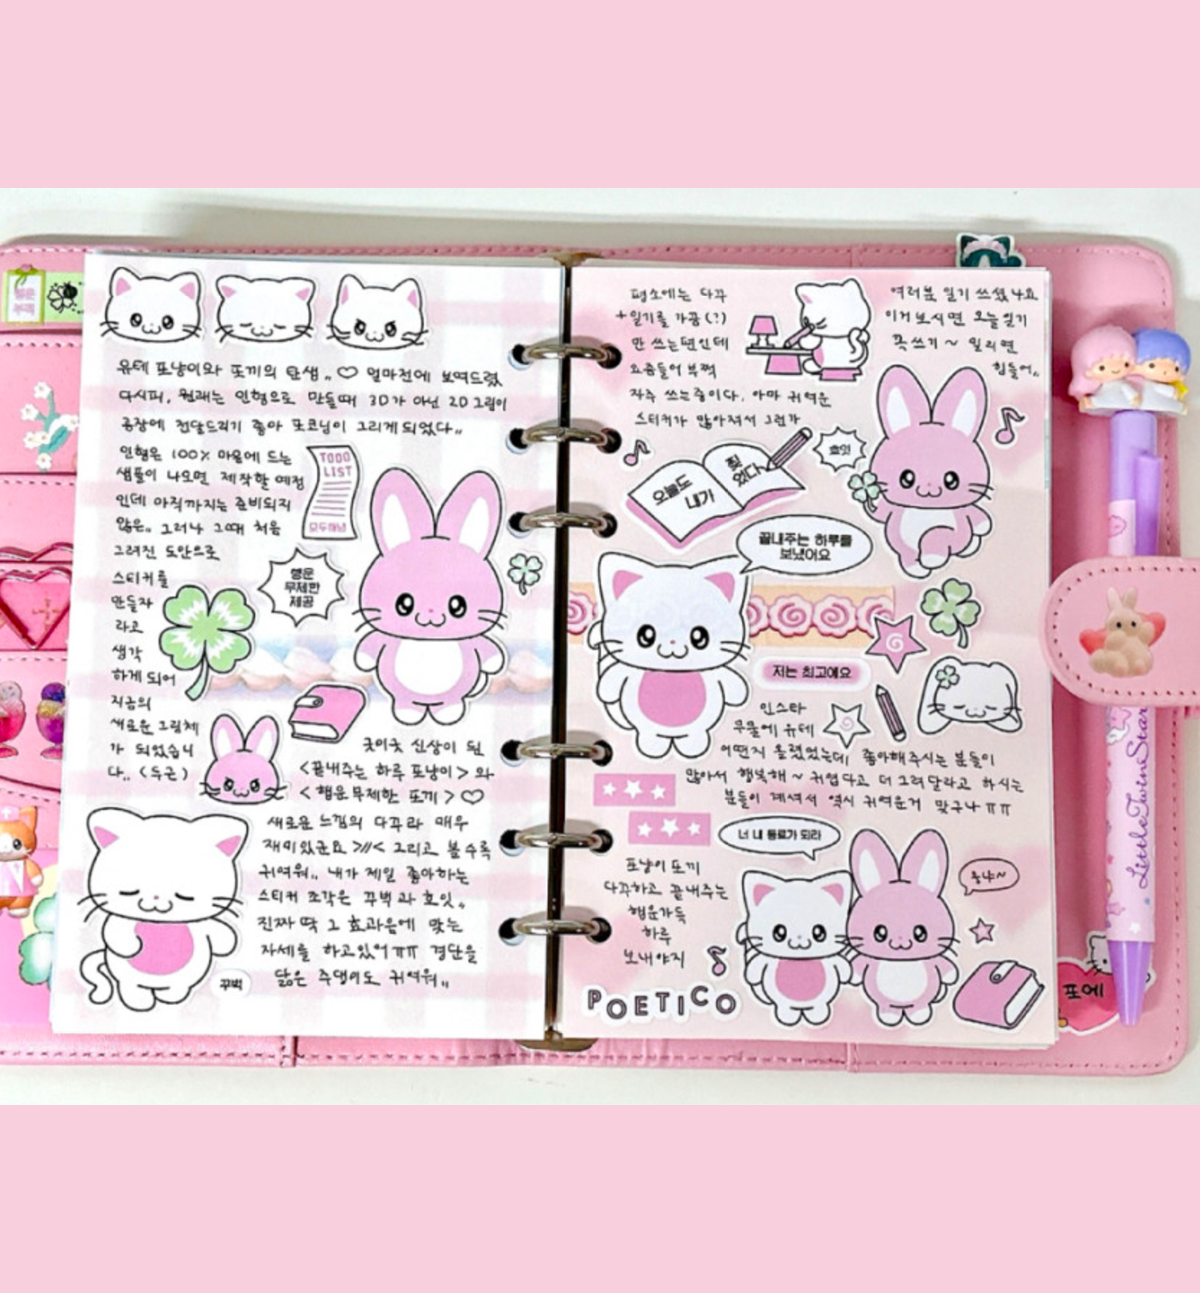 유테 포냥이와 또끼의 탄생,, ♡ 얼마전에 보여드렸
다시피, 원래는 인형으로 만들때 3D가 아닌 2D 그림이
공장에 전달드리기 좋아 포코님이 그리게되었다,,
인형은 100% 마음에 드는
샘플이 나오면 제작할 예정
인데 아직까지는 준비되지
않은,, 그러나 그때 처음
그려진 도안으로
스티커를
만들자
라고
생각
하게 되어
지금의
새로운 그림체
가 되었습니
다,, (두근)
TODO
LIST
모두해냄
행운
무제한
제공
굿이굿 신상이 된
<끝내주는 하루 포냥이> 와
<행운무제한 또끼> ♡
새로운 느낌의 다꾸라 매우
재미있군요 >//< 그리고 볼수록
귀여워,, 내가 제일 좋아하는
스티커 조각은 꾸벅 과 호잇,,
진짜 딱 그 효과음에 맞는
자세를 하고있어ㅠㅠ 경단을
닮은 주댕이도 귀여워,,
꾸벅
평소에는 다꾸
+일기를 가끔(?)
안 쓰는편인데
요즘들어 부쩍
자주 쓰는중이다. 아마 귀여운
스티커가 많아져서 그런가
여러분 일기 쓰셨나요
이거보시면 오늘일기
꼭쓰기~ 밀리면
힘들어,,
오늘도
내가
찢
었다
호잇
끝내주는 하루를
보냈어요
저는 최고에요
인스타
무물에 유테
어떤지 올렸었는데, 좋아해주시는 분들이
많아서 행복해~ 귀엽다고 더 그려달라고 하시는
분들이 계셔서 역시 귀여운거 맞구나ㅠㅠ
너 내 동료가 되라
좋냐~
포냥이 또끼
다꾸하고 끝내주는
행운가득
하루
보내야지
POETICO
포에
LittleTwinStars